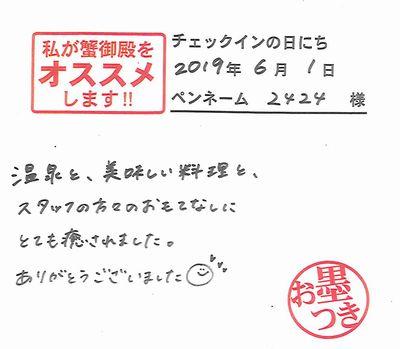 私が蟹御殿を
オススメ
します!!
チェックインの日にち
2019年 6月 1日
ペンネーム 2424 様
温泉と、美味しい料理と、
スタッフの方々のおもてなしに
とても癒されました。
ありがとうございました
お墨つき